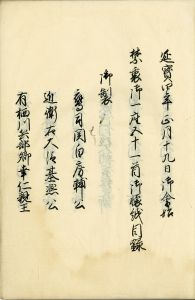 延寶甲寅年正月十九日御會始
禁裏御一座五十一首御懐紙目録
御製
鷹司関白房輔公
近衛右大臣基熈公
有栖川兵部卿幸仁親王